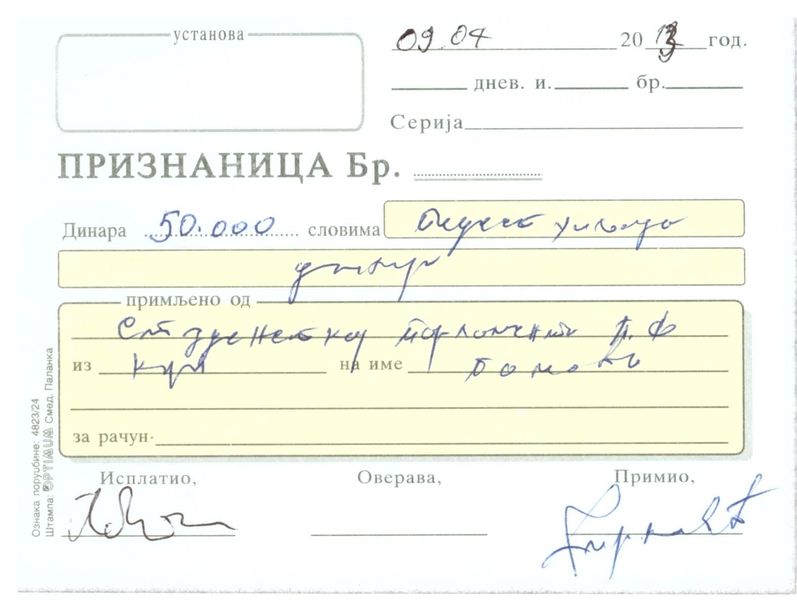 установа
09.04 20 год.
днев. и. бр.
Серија
ПРИЗНАНИЦА Бр.
Динара 50.000 словима педесет хиљада
динара
примљено од
Студентског парламента П.Ф
из на име
за рачун
Исплатио, Оверава, Примио,
Ознака поруџбине: 4823/24
Штампа: Смед. Паланка